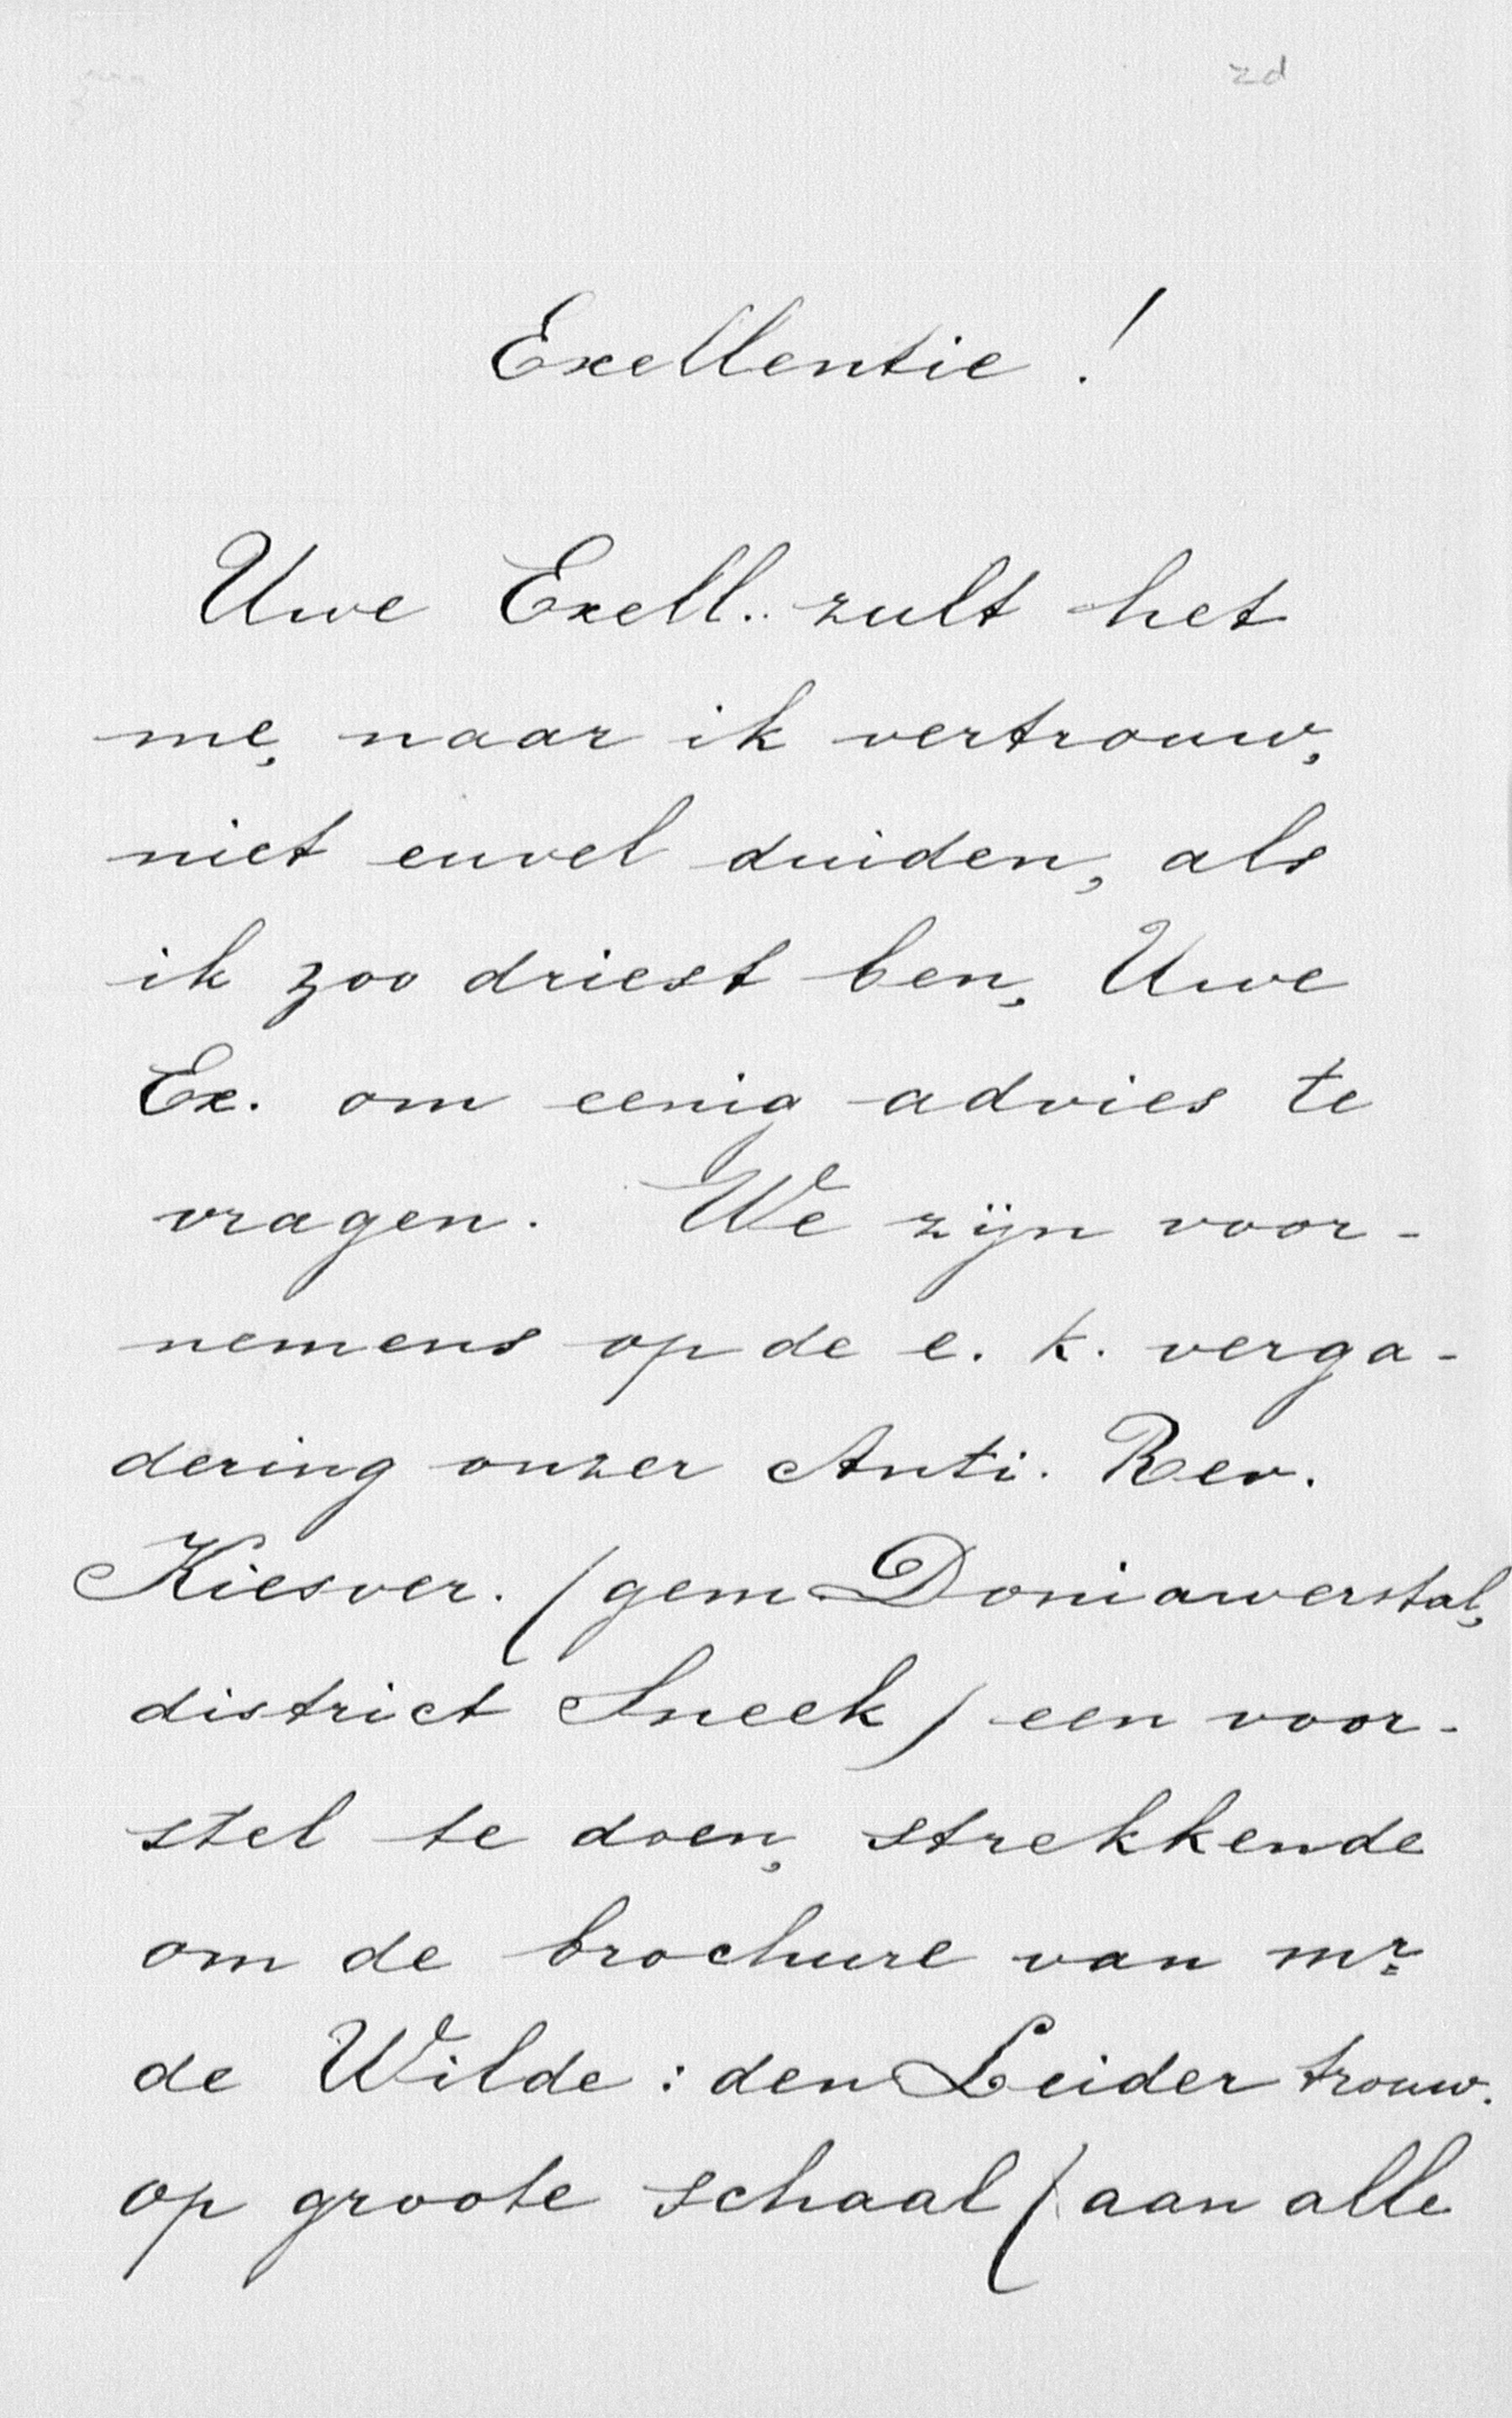 zd
Exellentie !
Uwe Exell. zult het
me, naar ik vertrouw,
niet euvel duiden, als
ik zoo driest ben, Uwe
Ex. om eenig advies te
vragen. We zijn voor-
nemens op de e. k. verga-
dering onzer Anti. Rev.
Kiesver. (gem. Doniawerstal,
district Sneek) een voor-
stel te doen, strekkende
om de brochure van mr
de Wilde : den Leider trouw.
op groote schaal (aan alle